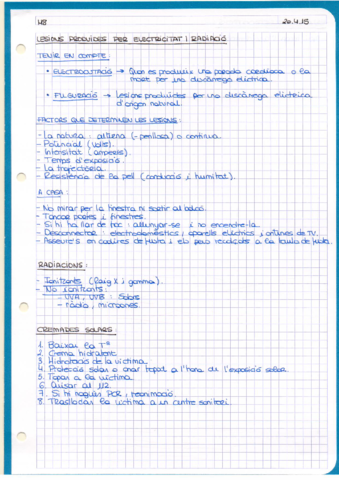 H8
20.4.15
LESIONS PRODUÏDES PER ELECTRICITAT I RADIACIÓ
TENIR EN COMPTE:
• ELECTROCUTACIÓ → Quan es produeix una parada cardíaca o la
mort per una descàrrega elèctrica.
• FULGURACIÓ → Lesions produïdes per una descàrrega elèctrica
d'origen natural.
FACTORS QUE DETERMINEN LES LESIONS:
- La natura: alterna (-perillosa) o continua.
- Potencial (volts).
- Intensitat (amperis).
- Temps d'exposició.
- La trajectòria.
- Resistència de la pell (conducció i humitat).
A CASA:
- No mirar per la finestra ni sortir al balcó.
- Tancar portes i finestres.
- Si hi ha llar de foc: allunyar-se i no encendre-la.
- Desconnectar: electrodomèstics, aparells elèctrics, antenes de TV.
- Asseure's en cadires de fusta i els peus recolzats a la taula de fusta.
RADIACIONS:
- Ionitzants (Raig X i gamma).
- No ionitzants:
- UVA, UVB: Solars
- ràdio, microones.
CREMADES SOLARS
1. Baixar la Tª
2. Crema hidratant.
3. Hidratació de la víctima.
4. Protecció solar o anar tapat a l'hora de l'exposició solar.
5. Tapar a la víctima.
6. Avisar al 112
7. Si hi hagués PCR, reanimació.
8. Traslladar la víctima a un centre sanitari.